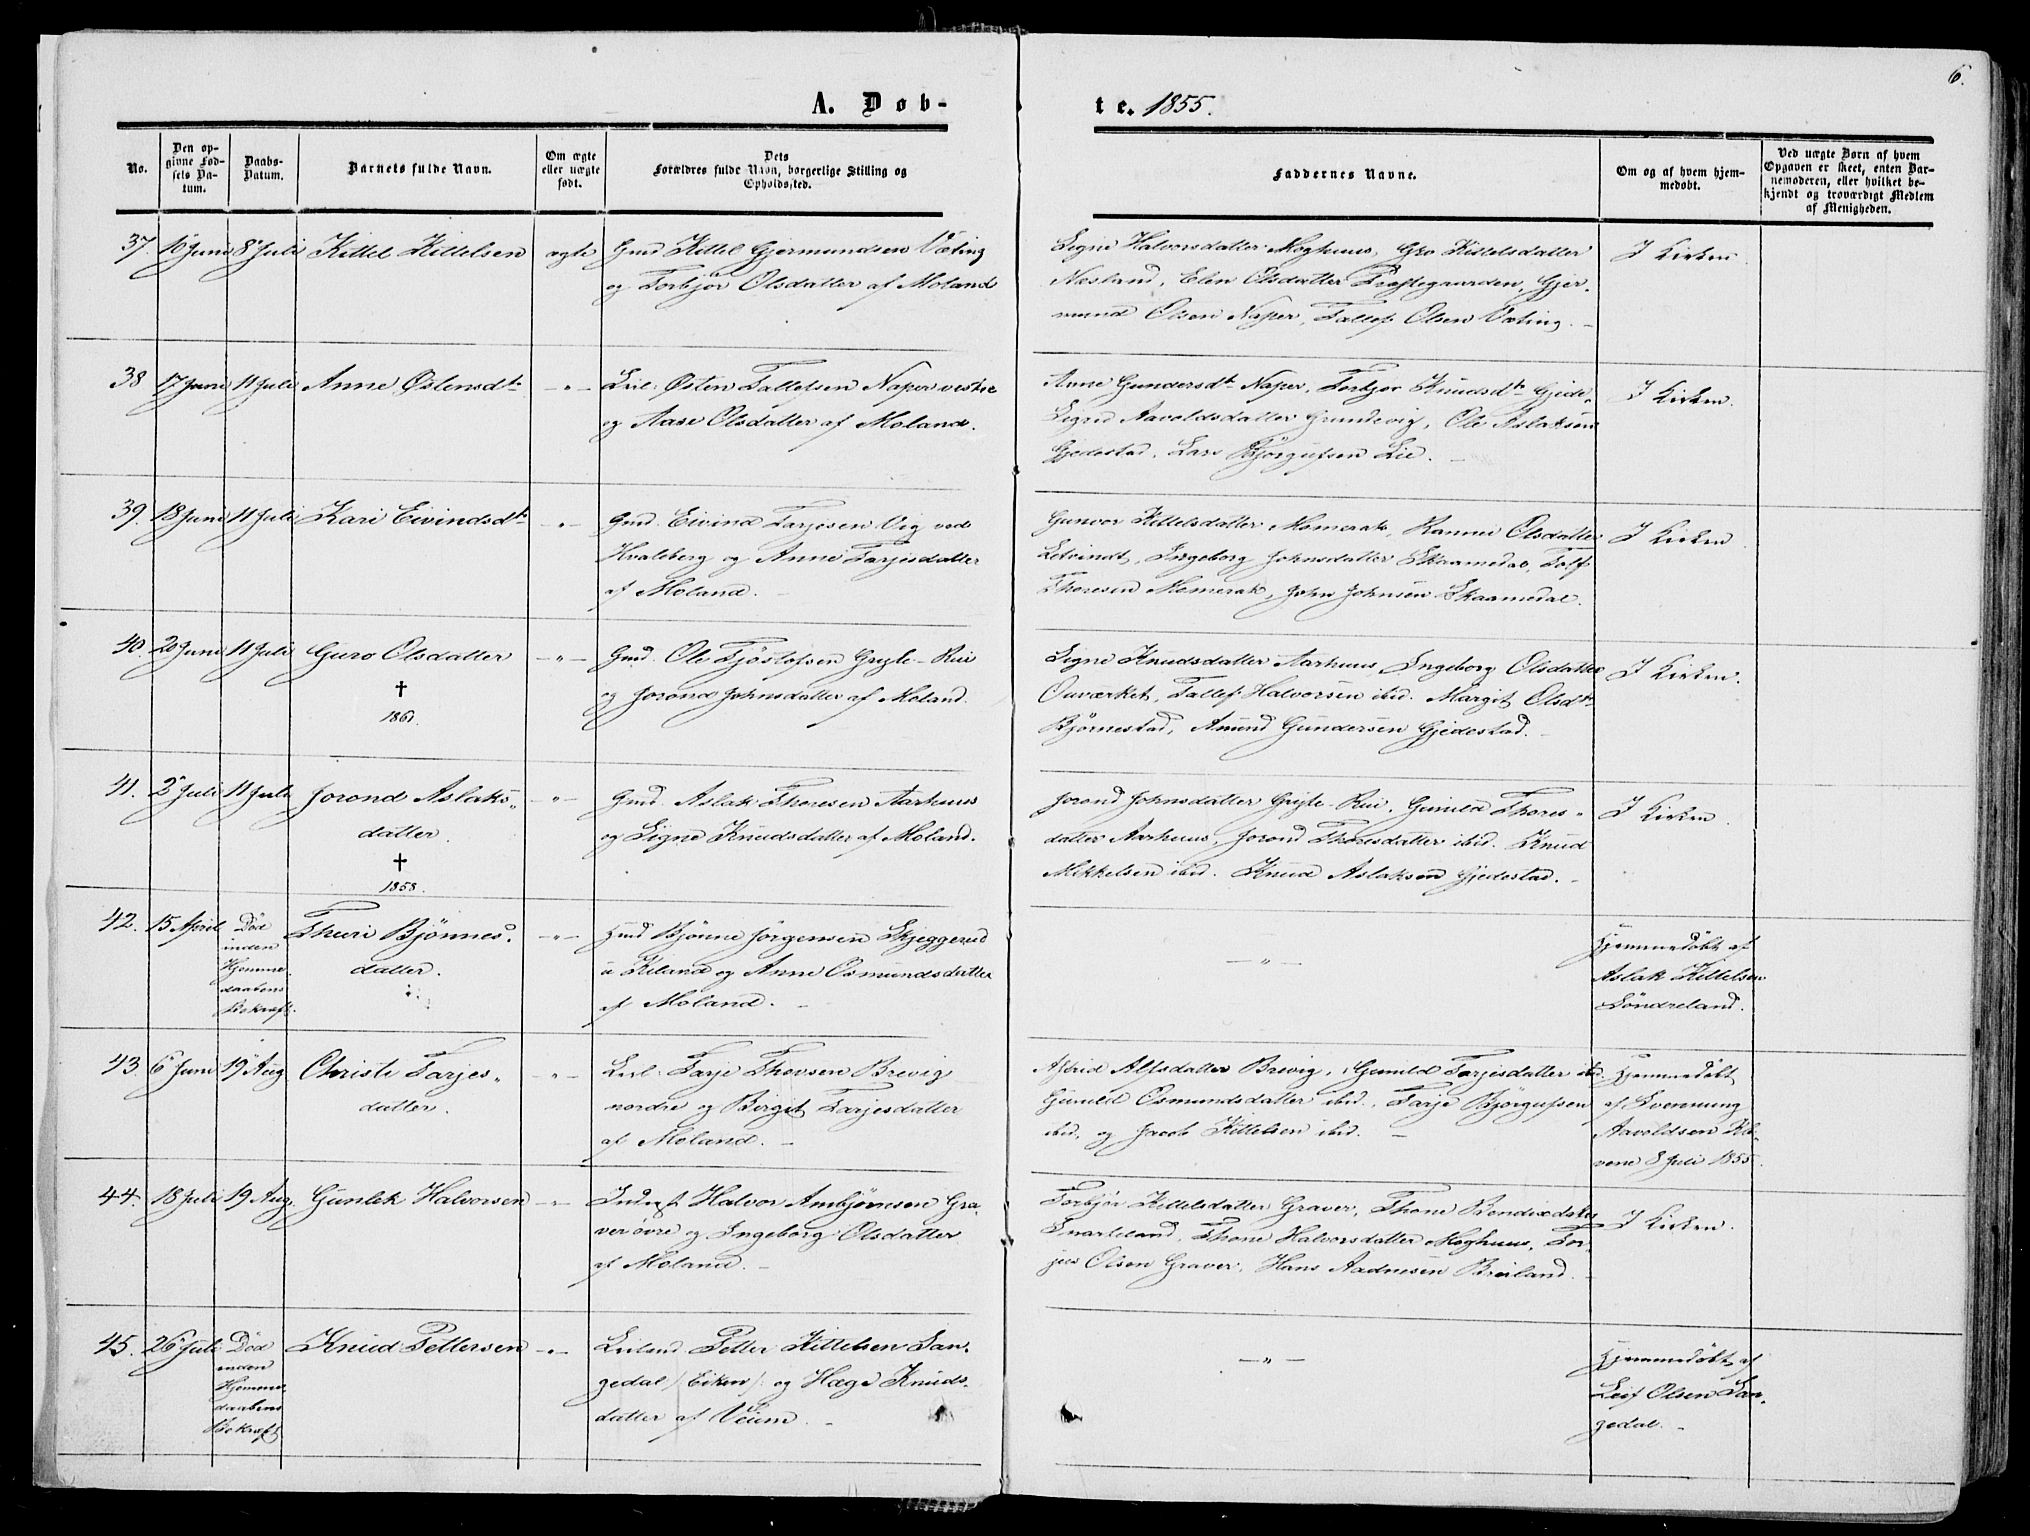 6.
A. Døb-
te. 1855.
No.
Den op-
givne Fød-
sels Da-
tum.
Daabs-
Datum.
Barnets fulde Navn.
Om ægte
eller uægte
født.
Dets
Forældres fulde Navn, borgerlige Stilling og
Opholdssted.
Faddernes Navne.
Om og af hvem hjem-
medøbt.
Ved uægte Børn af hvem
Opgaven er skeet, enten Bar-
nemoderen, eller hvilket be-
kjendt og troværdigt Medlem
af Menigheden.
37. 16 Juni 8 Juli Kittel Kittelsen ægte Gmd Kittel Gjermundsen Væting
og Torbjør Olsdatter af Moland
Signe Halvorsdatter Moghuus, Gro Kittelsdatter
Næsland, Elen Olsdatter Præstegaarden, Gjer-
mund Olsen Naper, Tallef Olsen Væting. –
I Kirken.
38 17 Juni 11 Juli Anne Østensdtr –"– Leil: Østen Tallefsen Naper vestre
og Aase Olsdatter af Moland.
Anne Gundersdtr Naper, Torbjør Knudsdtr Gjede-
Sigrid Aavoldsdatter Grundevig, Ole Aslaksen
Gjedestad, Lars Bjørgufsen Lie. –
I Kirken.
39. 18 Juni 11 Juli Kari Eivindsdtr –"– Gmd. Eivind Tarjesen Vig ved
Hvaleberg og Anne Tarjesdatter
af Moland. –
Gunvor Kittelsdatter Momrak, Rannei Olsdatter
Ingeborg Johnsdatter Skaamedal,
Thoresen Momrak, John Johnsen Skaamedal.
I Kirken
40. 20 Juni 11 Juli Guro Olsdatter –"– Gmd. Ole Tjøstolfsen Gryte-Rui
og Jorond Johnsdatter af Moland.
†
1861.
Signe Knudsdatter Aarhuus, Ingeborg Olsdatter
Ouværket, Tallef Halvorsen ibid. Margit Olsdtr
Bjørnestad, Amund Gundersen Gjedestad. –
I Kirken.
41. 2 Juli 11 Juli Jorond Aslaks-
datter.
†
1858.
–"– Gmd. Aslak Thoresen Aarhuus
og Signe Knudsdatter af Moland.
Jorond Johnsdatter Gryte-Rui, Gunild Thores-
datter Aarhuus, Jorond Thoresdatter ibid. Knud
Mikkelsen ibid. Knud Aslaksen Gjedestad. –
I Kirken.
42. 15 April Død
inden
Hjemme-
daabens
Bekræft.
Thuri Bjønnes-
datter.
–"– Hmd Bjønne Jørgensen Skjeggerud
u Kiland og Anne Osmundsdatter
af Moland. –
–"–
Hjemmedøbt af
Aslak Kittelsen
Søndreland.
43. 6 Juni 19 Aug Christi Tarjes-
datter.
–"– Leil: Tarje Thovsen Brevig
nordre og Birgit Tarjesdatter
af Moland. –
Astrid Alfsdatter Brevig, Gunild Tarjesdatter ibid.
Gunild Osmundsdatter ibid., Tarje Bjørgufsen
ibid, og Jacob Kittelsen ibid. –
Hjemmedøbt
af Svennung
Aavoldsen
8 Juli 1855.
44. 18 Juli 19 Aug. Gunlek Halvorsen –"– Inderst Halvor Ambjørnsen Gra-
ver øvre og Ingeborg Olsdatter
af Moland. –
Torbjør Kittelsdatter Graver, Thone
Snarteland, Thone Halvorsdatter Moghuus, Tor-
jus Olsen Graver, Hans Aadnesen Breiland. –
I Kirken.
45. 26 Juli Død
inden
Hjemme-
daabens
Bekræft
Knud Pettersen –"– Leiland. Petter Kittelsen San-
gedal /: Eiken :/ og Hæge Knuds-
datter af Veum. –
–"–
Hjemmedøbt af
Leif Olsen San-
gedal. –